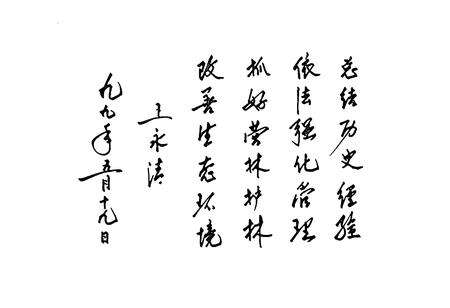 总结历史经验
依法强化管理
抓好营林护林
改善生态环境
王永清
九九年五月十九日